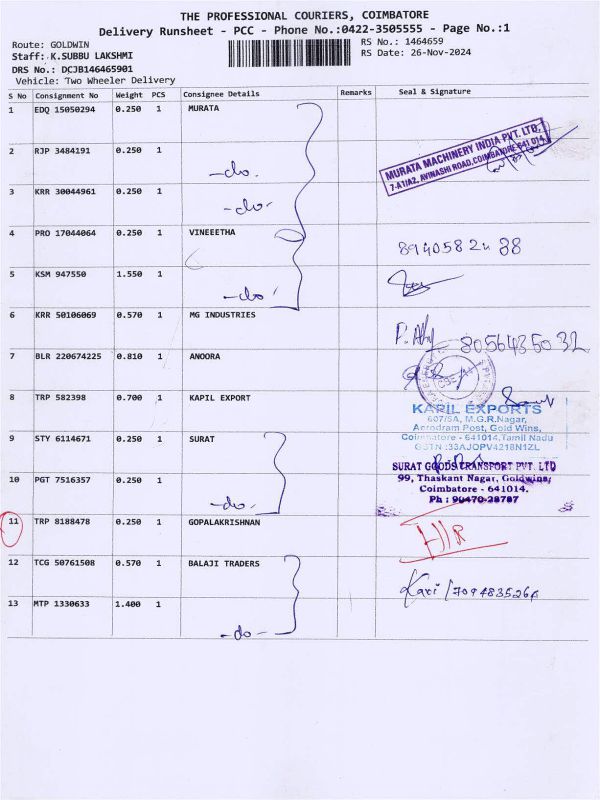 THE PROFESSIONAL COURIERS, COIMBATORE
Delivery Runsheet - PCC - Phone No.:0422-3505555 - Page No.:1
Route: GOLDWIN
RS No.: 1464659
Staff: K.SUBBU LAKSHMI
RS Date: 26-Nov-2024
DRS No.: DCJB146465901
Vehicle: Two Wheeler Delivery
S No Consignment No Weight PCS Consignee Details Remarks Seal & Signature
1 EDQ 15050294 0.250 1 MURATA
MURATA MACHINERY INDIA PVT. LTD.
7-A1/A2, AVINASHI ROAD, COIMBATORE 641 014.
2 RJP 3484191 0.250 1
-do.
3 KRR 30044961 0.250 1
-do-
4 PRO 17044064 0.250 1 VINEEETHA
8940582488
5 KSM 947550 1.550 1
-do-
6 KRR 50106069 0.570 1 MG INDUSTRIES
8056435032
7 BLR 220674225 0.810 1 ANOORA
8 TRP 582398 0.700 1 KAPIL EXPORT
KAPIL EXPORTS
607/5A, M.G.R.Nagar,
Aerodram Post, Gold Wins,
Coimbatore - 641014,Tamil Nadu
GSTN :33AJOPV4218N1ZL
9 STY 6114671 0.250 1 SURAT
SURAT GOODS TRANSPORT PVT. LTD
99, Thaskant Nagar, Goldwins,
Coimbatore - 641014.
Ph : 90470-28787
10 PGT 7516357 0.250 1
-do-
11 TRP 8188478 0.250 1 GOPALAKRISHNAN
12 TCG 50761508 0.570 1 BALAJI TRADERS
Kavi / 7094835264
13 MTP 1330633 1.400 1
-do-